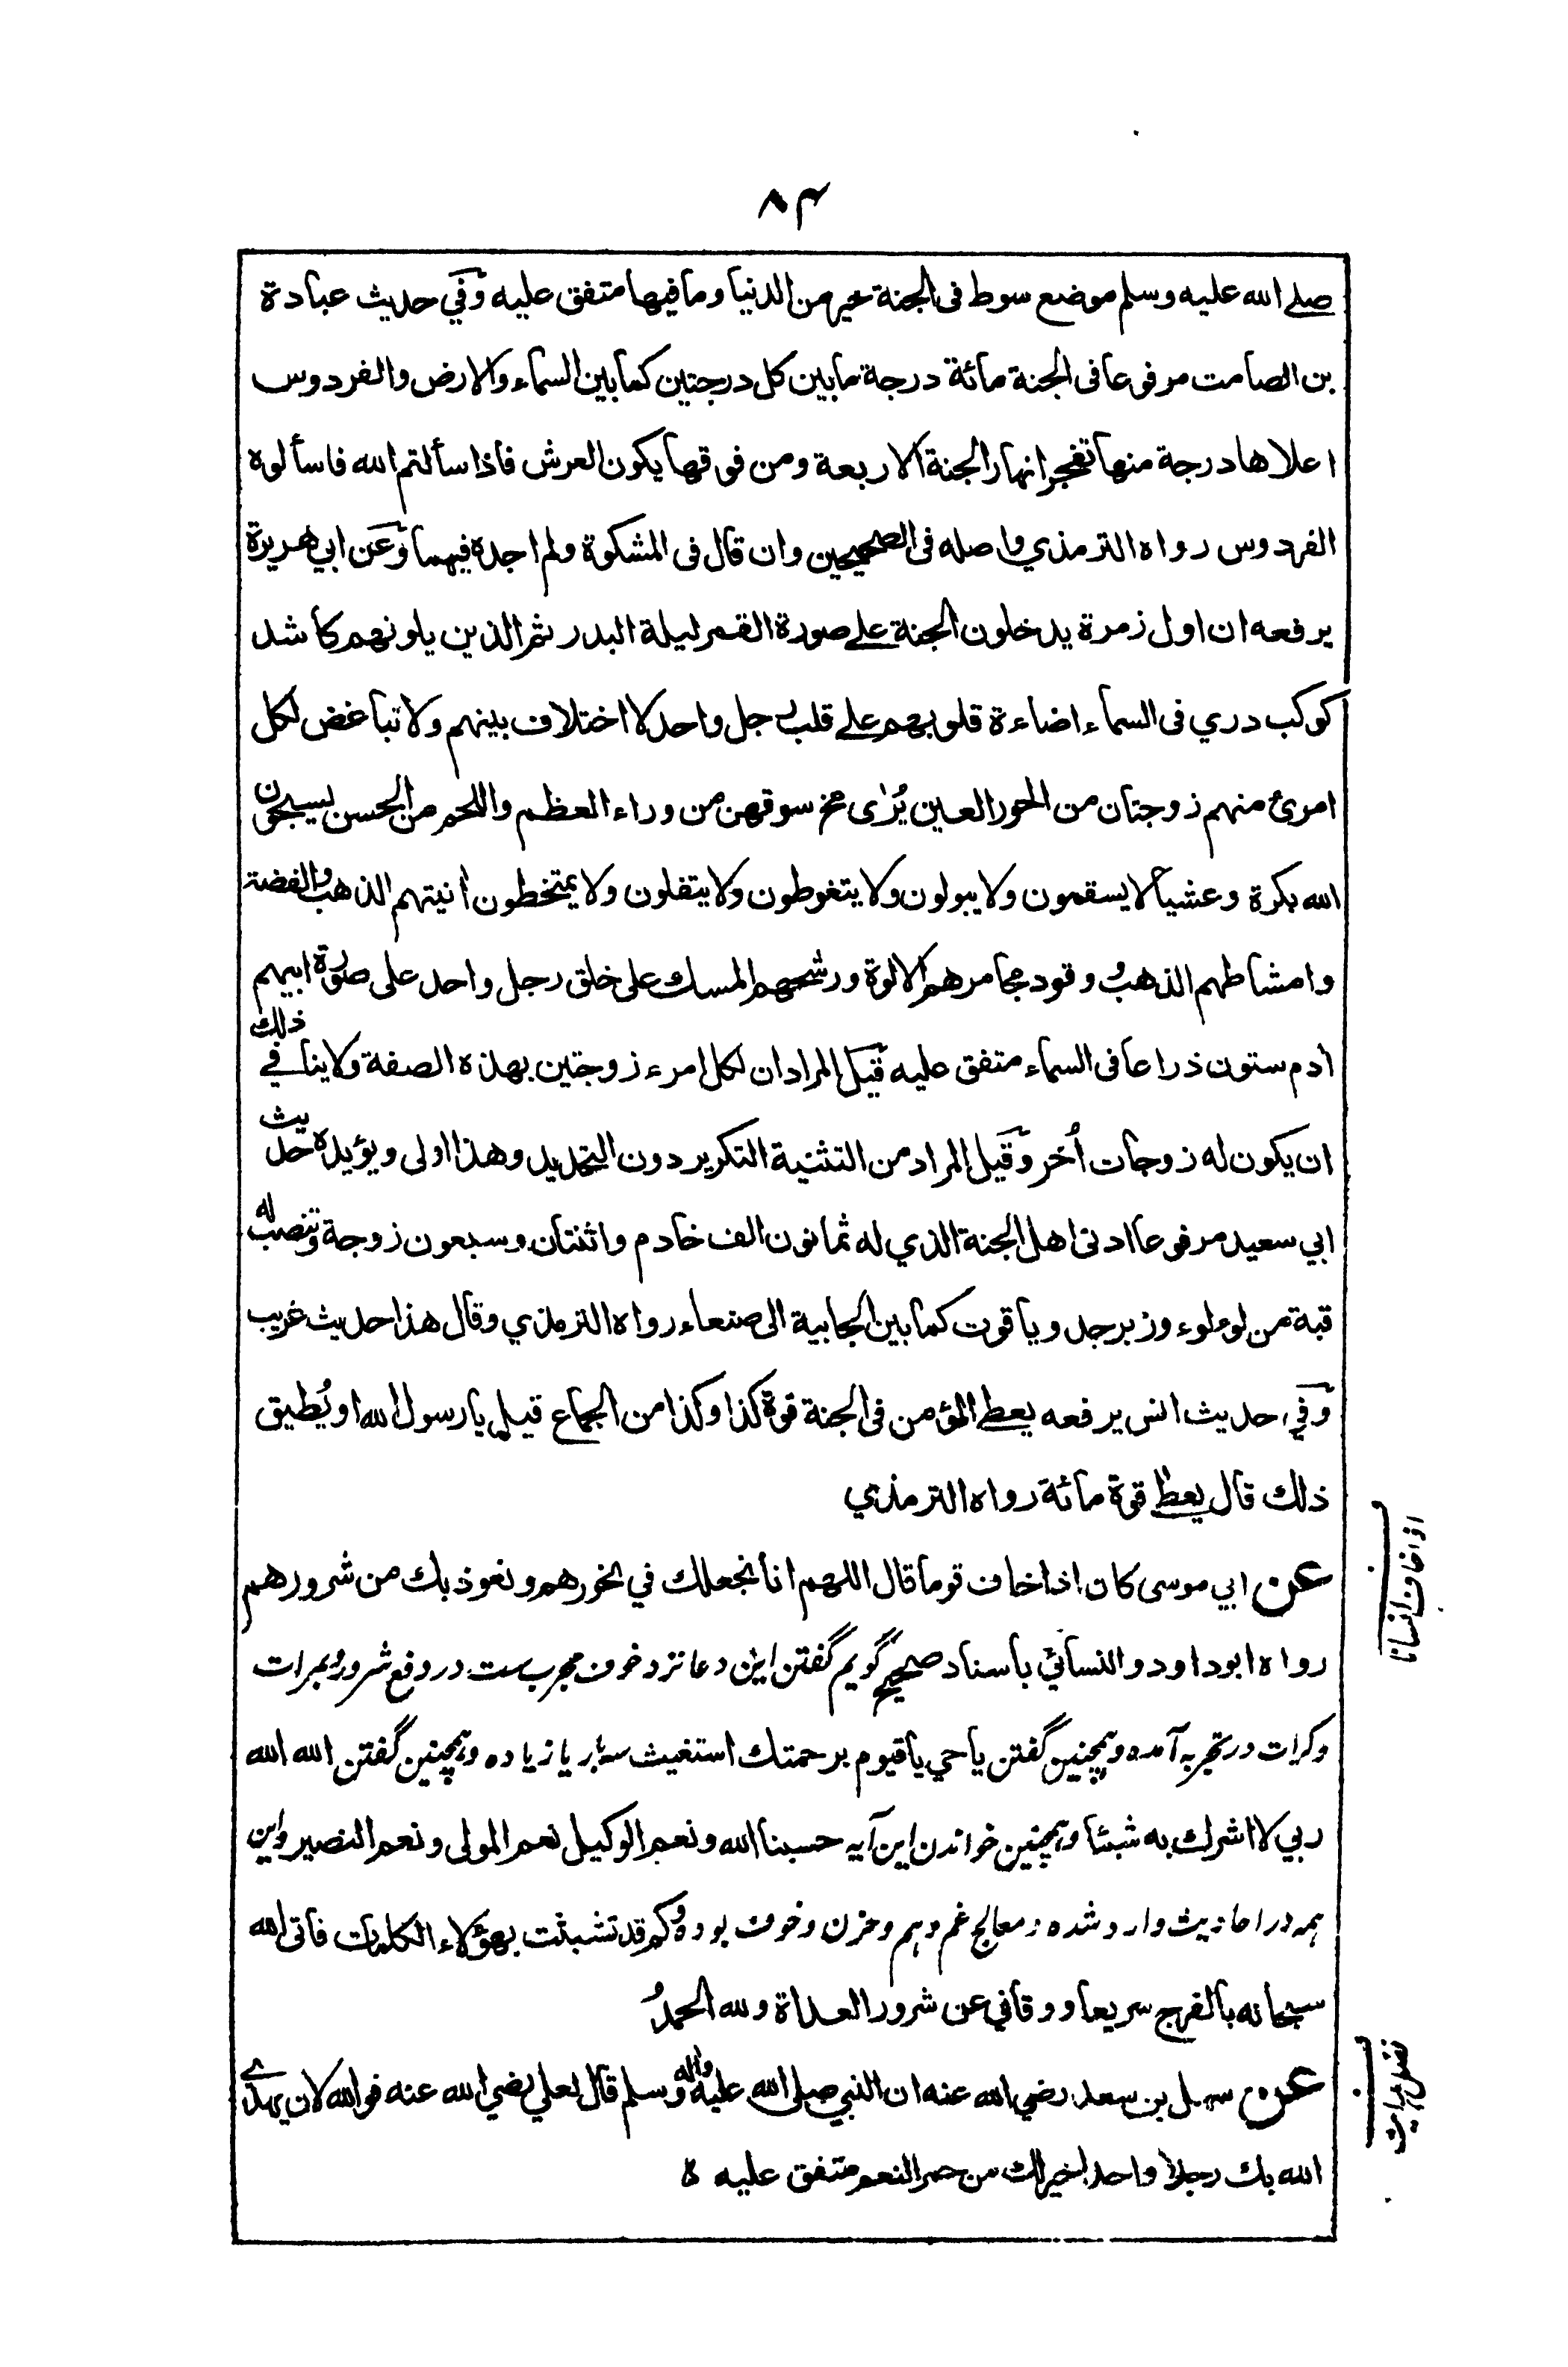 ۸۴
صلے الله عليه وسلم موضع سوط فى الجنة خير من الدنيا وما فيها متفق عليه وفي حديث عبادة
بن الصامت مرفوعا فى الجنة مائة درجة ما بين كل درجتين كما بين السماء والارض والفردوس
اعلاها درجة منها تفجر انهار الجنة الاربعة ومن فوقها يكون العرش فاذا سألتم الله فاسألوه
الفردوس رواه الترمذي واصله فى الصحيحين وان قال فى المشكوة ولم اجده فيهما وعن ابي هريرة
يرفعه ان اول زمرة يدخلون الجنة علے صورة القمر ليلة البدر ثم الذين يلونهم كأشد
كوكب دري فى السماء اضاءة قلوبهم علے قلب رجل واحد لا اختلاف بينهم ولا تباغض لكل
امرئ منهم زوجتان من الحور العين يُرٰى مخ سوقهن من وراء العظم واللحم من الحسن يسبحون
الله بكرة وعشيا لا يسقمون ولا يبولون ولا يتغوطون ولا يتفلون ولا يمتخطون أنيتهم الذهب والفضة
وامشاطهم الذهبُ وقود مجامرهم الالوة ورشحهم المسك على خلق رجل واحد على صورة ابيهم
أدم ستون ذراعا فى السماء متفق عليه قيل المراد ان لكل امرء زوجتين بهذه الصفة ولا ينافي ذلك
ان يكون له زوجات أُخر وقيل المراد من التثنية التكرير دون التحديد وهذا اولى ويؤيده حديث
ابي سعيد مرفوعا ادنى اهل الجنة الذي له ثمانون الف خادم واثنتان وسبعون زوجة وتنصب له
قبة من لوءلوء وزبرجد وياقوت كما بين الجابية الى صنعاء رواه الترمذي وقال هذا حديث غريب
وفي حديث انس يرفعه يعطے المؤمن فى الجنة قوة كذا وكذا من الجماع قيل يا رسول الله او يُطيق
ذلك قال يعطے قوة مائة رواه الترمذي
عن ابي موسى كان اذا خاف قوما قال اللهم انا نجعلك في نحورهم ونعوذ بك من شرورهم
رواه ابو داود والنسائي باسناد صحيح گويم گفتن اين دعا نزد خوف مجرب ست در دفع شرور و بمرات
وكرات در تجربه آمده و همچنين گفتن يا حي يا قيوم برحمتك استغيث سه بار يا زياده و همچنين گفتن الله الله
ربي لا اشرك به شيئا و همچنين خواندن اين آيه حسبنا الله ونعم الوكيل نعم المولى ونعم النصير واين
همه در احاديث وارد شده و معالج غم و هم و حزن و خوف بوده وكم قد تشبثت بهؤلاء الكلمات فأتى الله
سبحانه بالفرج سريعا ووقاني عن شرور العداة ولله الحمدُ
عن سهل بن سعد رضي الله عنه ان النبي صلى الله عليه واله وسلم قال لعلي رضي الله عنه فوالله لان يهدے
الله بك رجلا واحدا خير لك من حمر النعم متفق عليه ه
اذا خاف انسانا
فضل هدايت